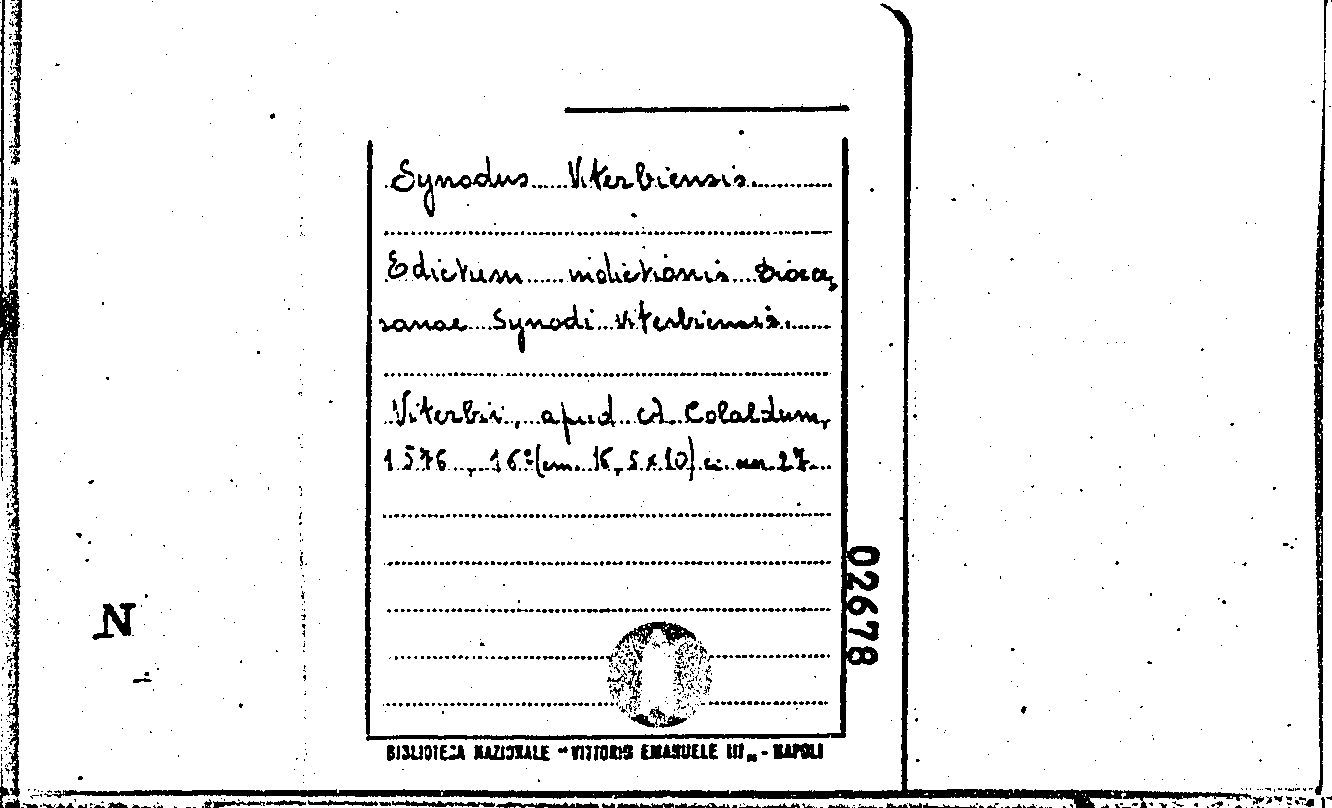 Synodus Viterbiensis
Edictum indictionis Dioce,
sanae Synodi Viterbiensis.
Viterbii, apud Colaldum,
1576, 16° (cm. 16,5x10) c. nn 27
02678
N
BIBLIOTECA NAZIONALE "VITTORIO EMANUELE III„ - NAPOLI